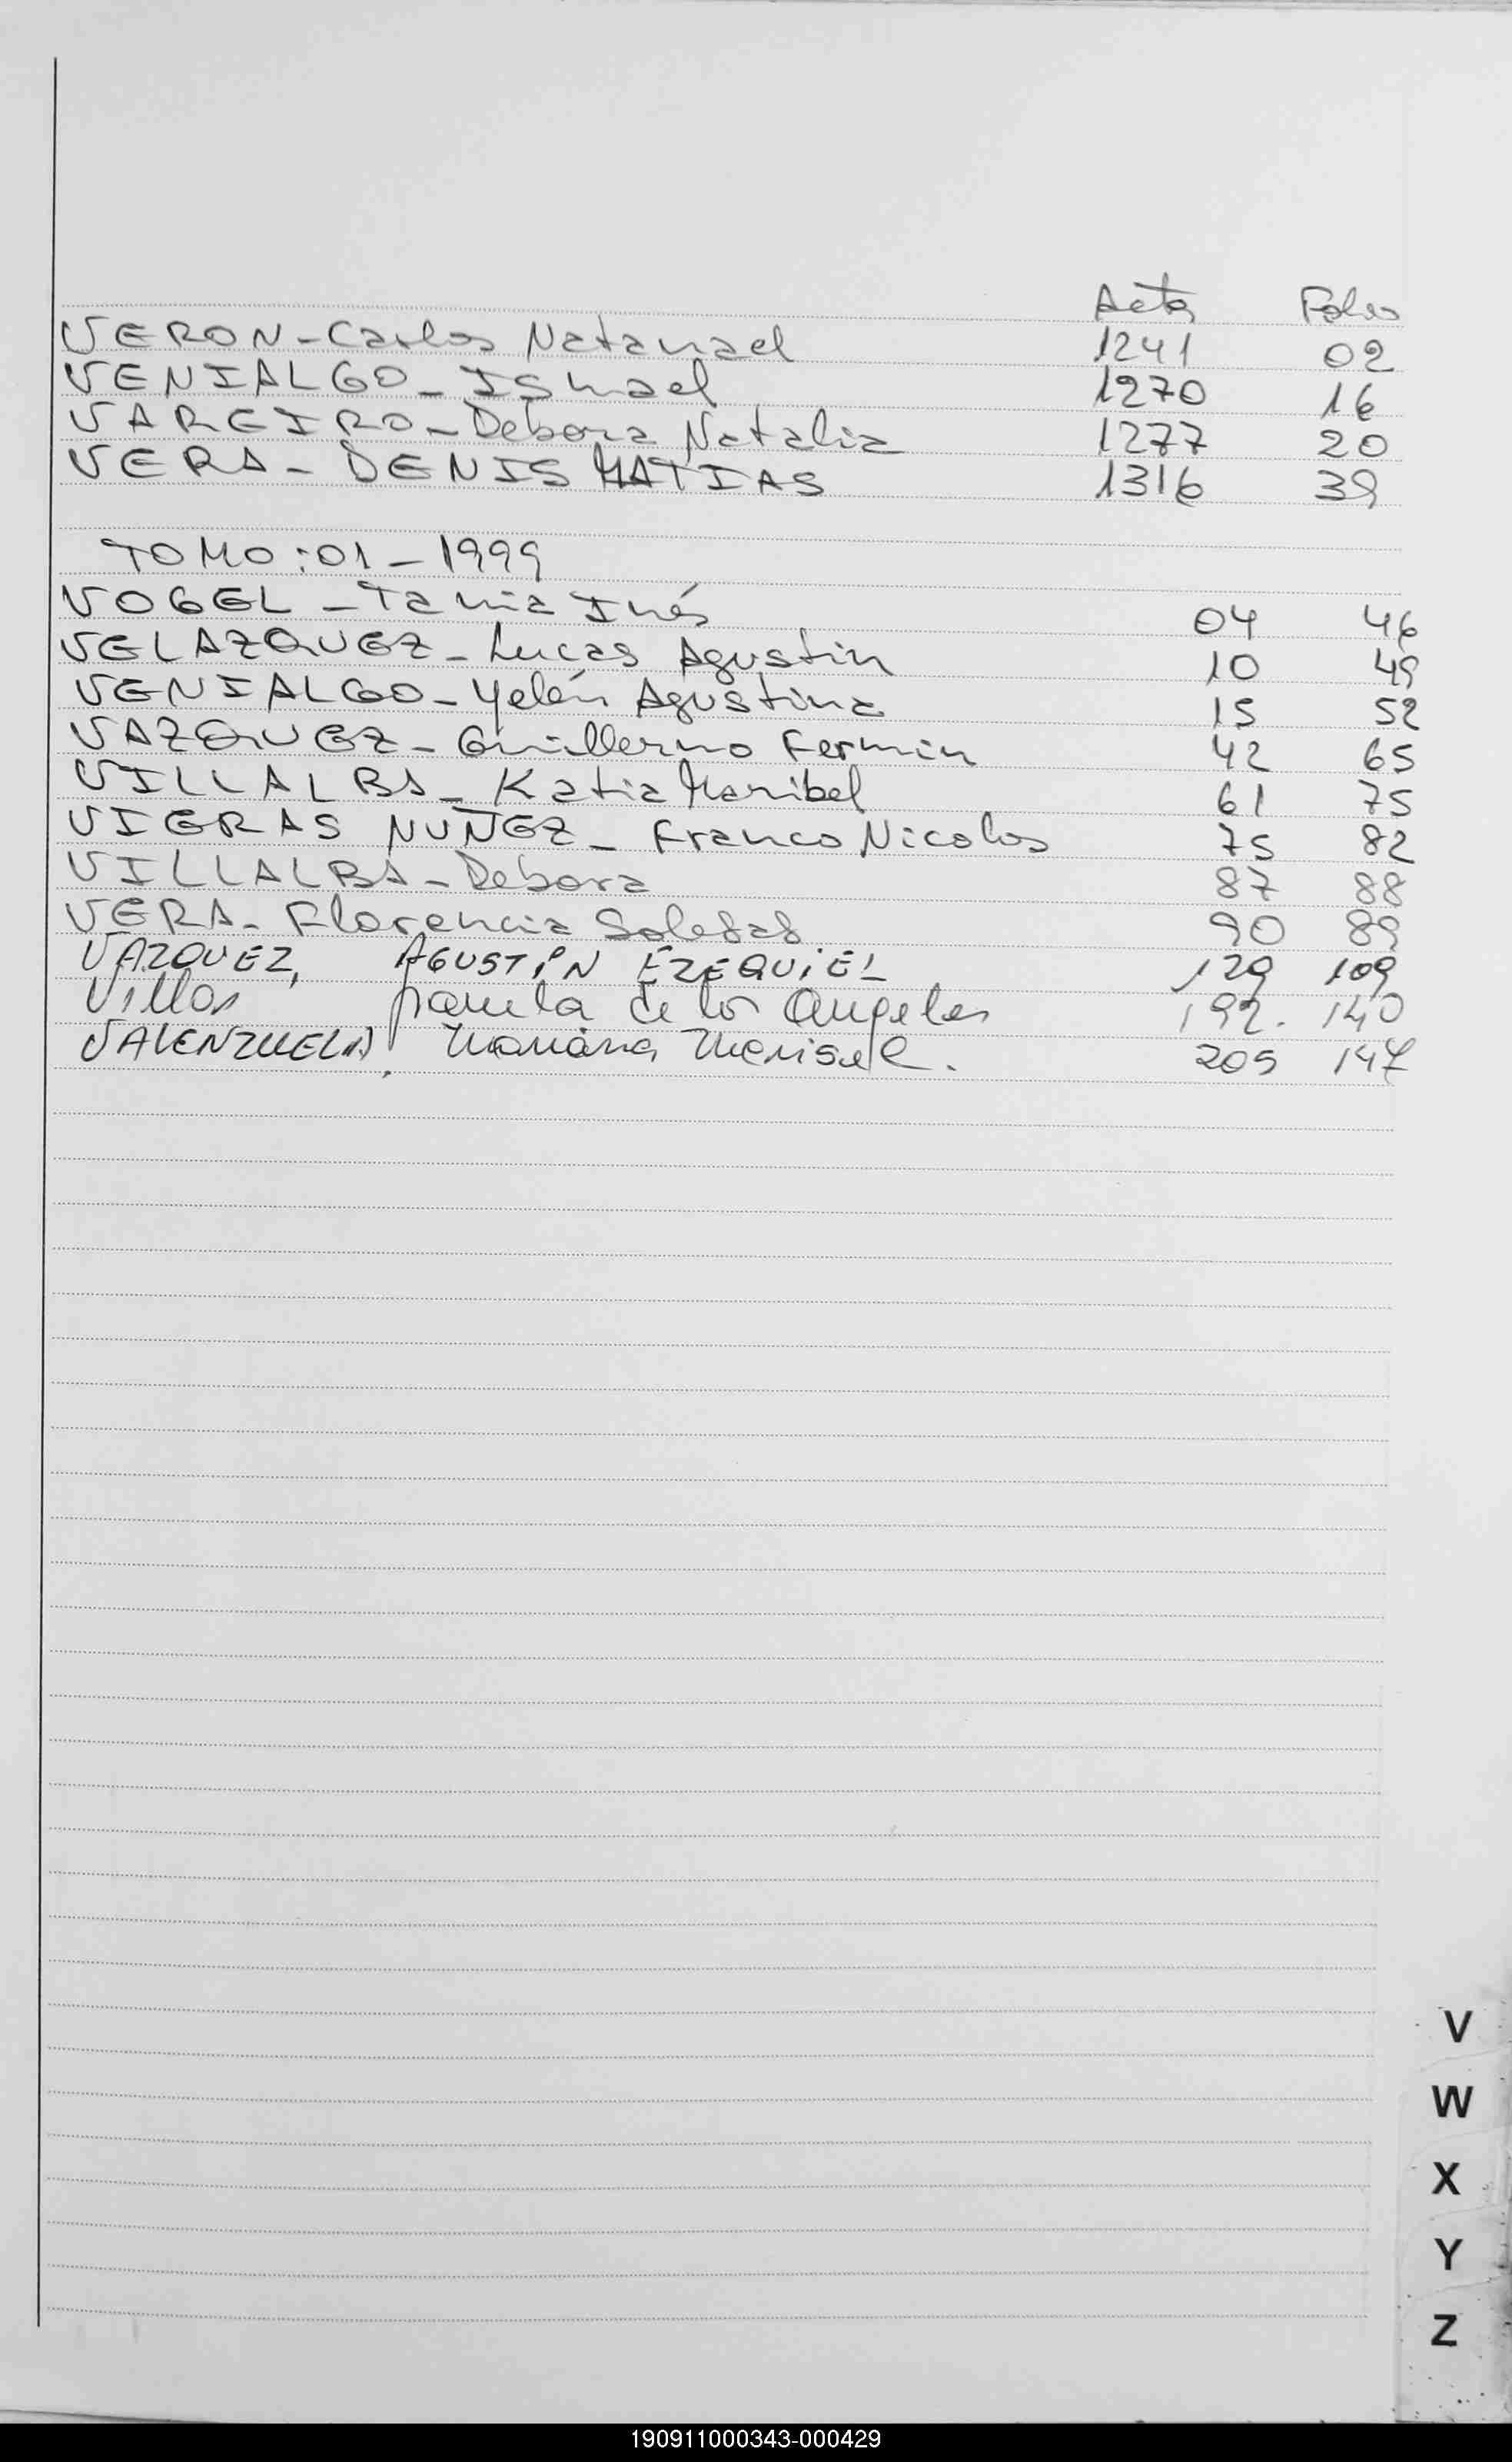 Acta Folio
VERON - Carlos Natanael 1241 02
VENIALGO - Ismael 1270 16
VAREIRO - Debora Natalia 1277 20
VERA - DENIS MATIAS 1316 39
TOMO: 01 - 1999
VOGEL - Tania Inés 04 46
VELAZQUEZ - Lucas Agustin 10 49
VENIALGO - Yelén Agustina 15 52
VAZQUEZ - Guillermo Fermin 42 65
VILLALBA - Katia Maribel 61 75
VIERAS NUÑEZ - Franco Nicolas 75 82
VILLALBA - Debora 87 88
VERA - Florencia Soledad 90 89
VAZQUEZ, AGUSTIN EZEQUIEL 129 109
Villar de los Angeles 192. 140
VALENZUELA, Mariana Marisel. 205 147
V
W
X
Y
Z
190911000343-000429